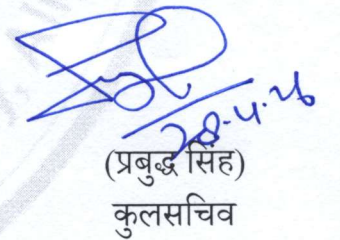 28.4.26
(प्रबुद्ध सिंह)
कुलसचिव